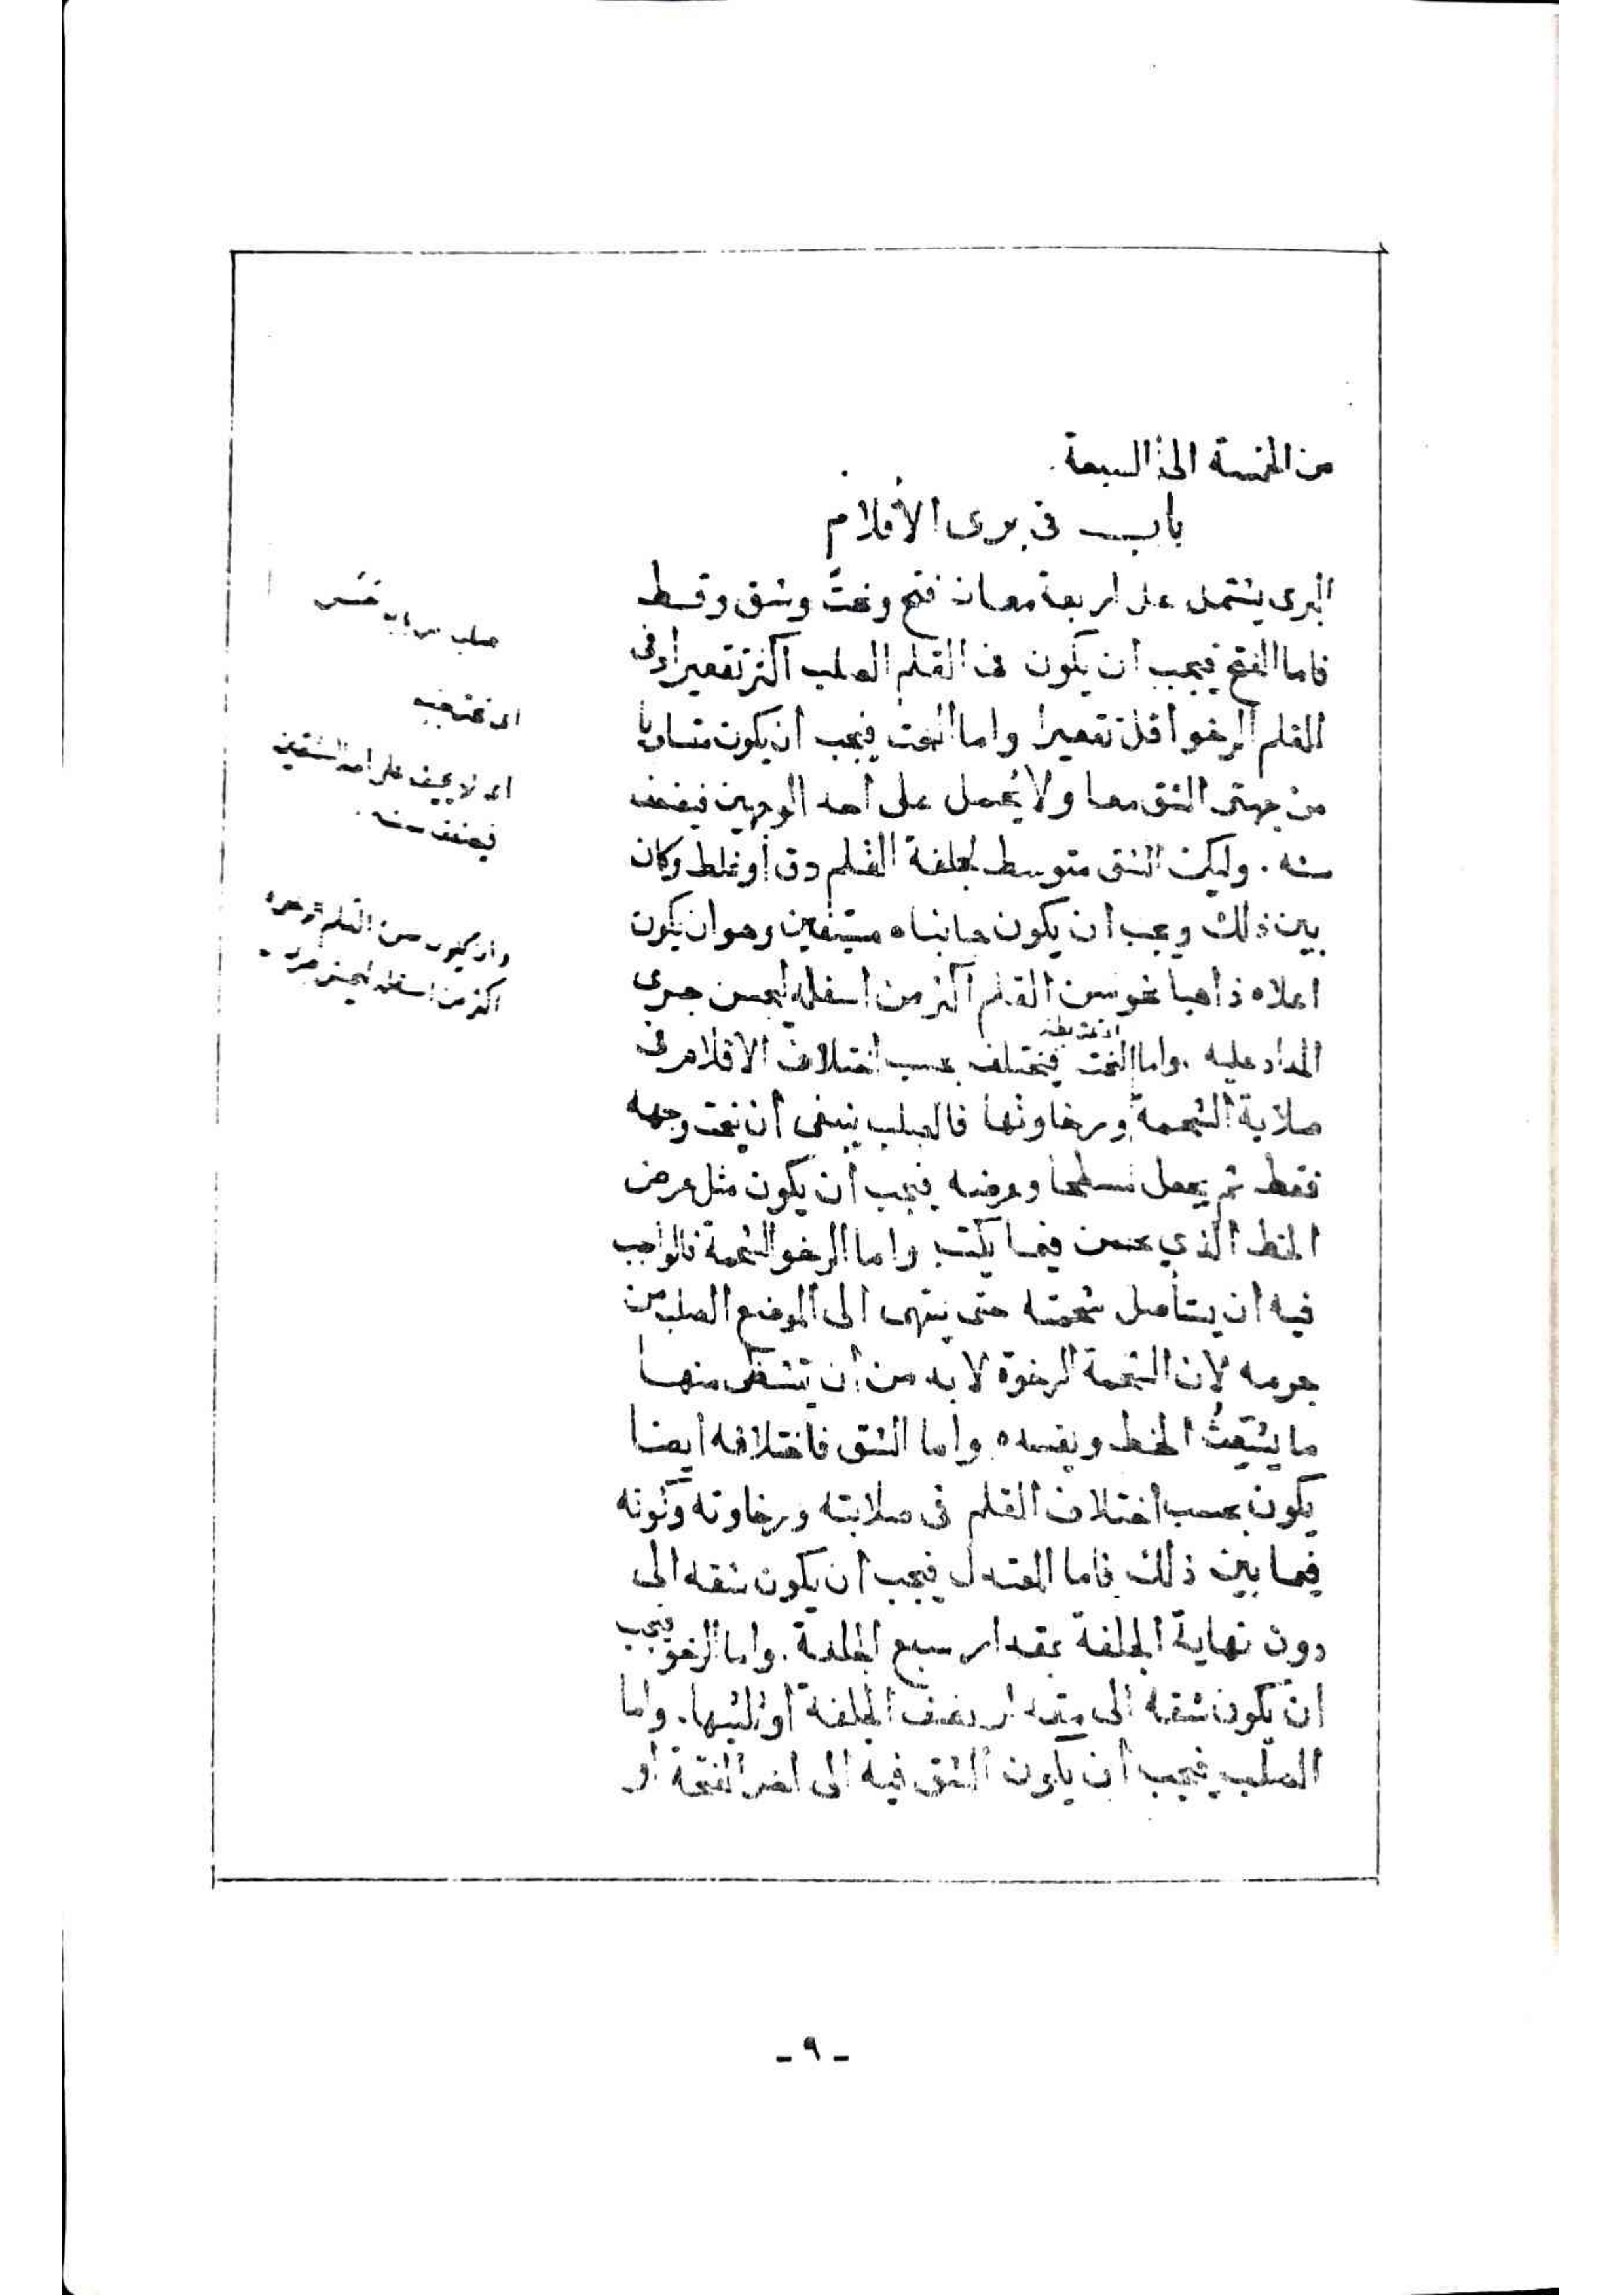 من الخمسة الى السبعة.
باب فى برى الأقلام
البرى يشتمل على اربعة معان فتح ونحت وشق وقط
فاما الفتح فيجب ان يكون فى القلم الصلب اكثر تقعيرا وفى
القلم الرخو أقل تقعيرا واما النحت فيجب ان يكون متساويا
من جهتى الشق معا ولا يحمل على أحد الوجهين فيضعف
سنه. وليكن الشق متوسط لجلفة القلم دق أو غلظ وكان
بين ذلك ويجب ان يكون جانباه مسيفين وهو ان يكون
اعلاه ذاهبا نحو سن القلم اكثر من اسفله ليحسن جرى
المداد عليه. واما النحت فيختلف بحسب اختلاف الاقلام فى
صلابة الشحمة ورخاوتها فالصلب ينبغى أن ينحت وجهه
فقط ثم يجعل مسطحا وعرضه فيجب أن يكون مثل عرض
الخط الذي يحسن فيما يكتب واما الرخو الشحمة فالواجب
فيه ان يستأصل شحمته حتى ينتهى الى الموضع الصلب من
جرمه لان الشحمة الرخوة لا بد من ان تتشظى منها
ما يشعث الخط ويفسده واما الشق فاختلافه ايضا
يكون بحسب اختلاف القلم فى صلابته ورخاوته وكونه
فيما بين ذلك فاما المعتدل فيجب ان يكون شقه الى
دون نهاية الجلفة بمقدار سبع الجلفة. واما الرخو فيجب
ان يكون شقه الى مقدار نصف الجلفة أو ثلثيها. واما
الصلب فيجب أن يكون الشق فيه الى اخر الفتحة أو
صلب
اى نحت جنبيه
اى لا يحيف على احد الشقين
فيضعف سنه.
سن القلم
اكثر من اسفله ليحسن
- ٩ -